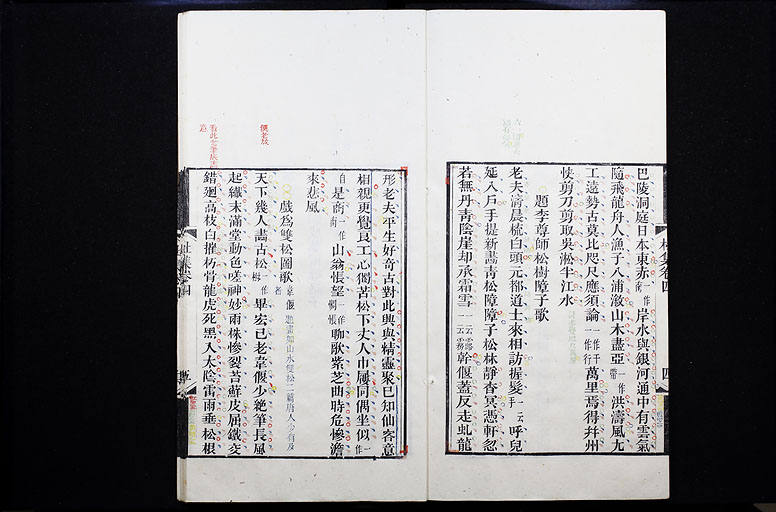 巴陵洞庭日本東赤一作南岸水與銀河通中有雲氣
隨飛龍舟人漁子入浦漵山木盡亞一作帶洪濤風尤
工遠勢古莫比咫尺應須論一作千一作行萬里焉得并州
快剪刀剪取吳淞半江水
題李尊師松樹障子歌
老夫清晨梳白頭元都道士來相訪握髮一云手呼兒
延入戶手提新畫青松障障子松林靜杳冥憑軒忽
若無丹青陰崖却承霜雪一云露一云霧幹偃蓋反走虬龍
形老夫平生好奇古對此興與精靈聚已知仙客意
相親更覺良工心獨苦松下丈人巾屨同偶坐似一作
自是商一作南山翁悵望一作惆悵聊歌紫芝曲時危慘澹
來悲風
戲為雙松圖歌
天下幾人畫古松一作樹畢宏已老韋偃少絕筆長風
起纖末滿堂動色嗟神妙兩株慘裂苔蘚皮屈鐵交
錯迴高枝白摧朽骨龍虎死黑入太陰雷雨垂松根
杜集卷四
四